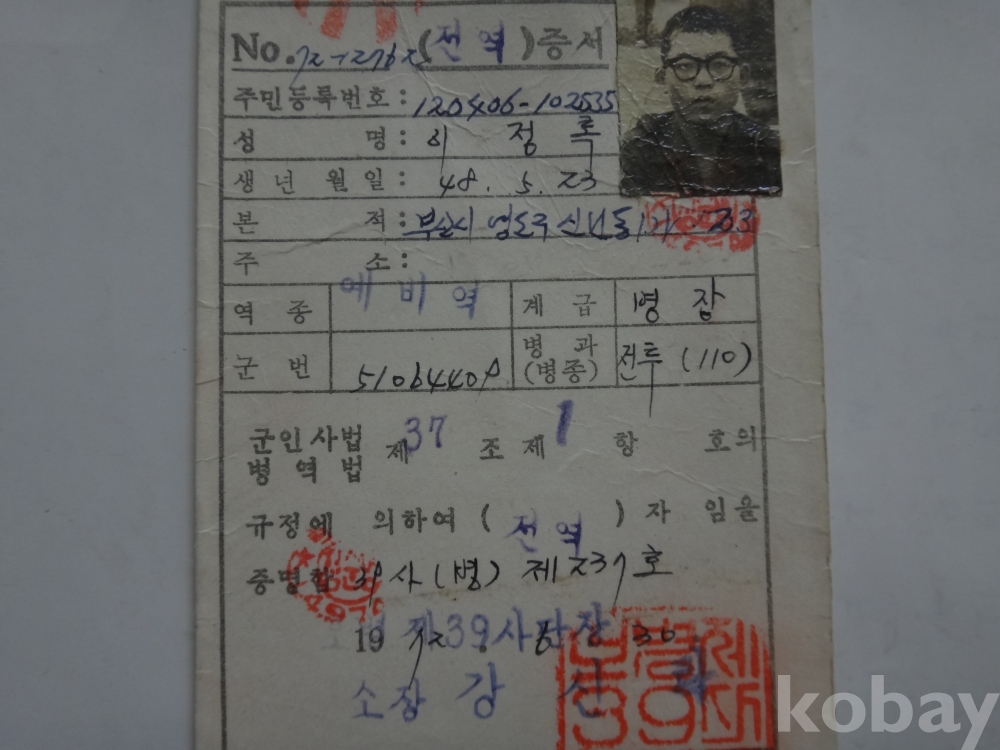 No. 72-2762 (전역)증서
주민등록번호: 120406-102535
성 명: 이 정 록
생년월일: 48. 5. 23
본 적: 부산시 영도구 신선동 233
주 소:
역 종 예비역 계 급 병장
군 번 51064409 병 과 (병종) 전투 (110)
군인사법
병역법 제37조제1항 호의
규정에 의하여 (전역)자 임을
증명함 39사(병) 제237호
1972 6 30
제39사단장
소장 강 신
kobay